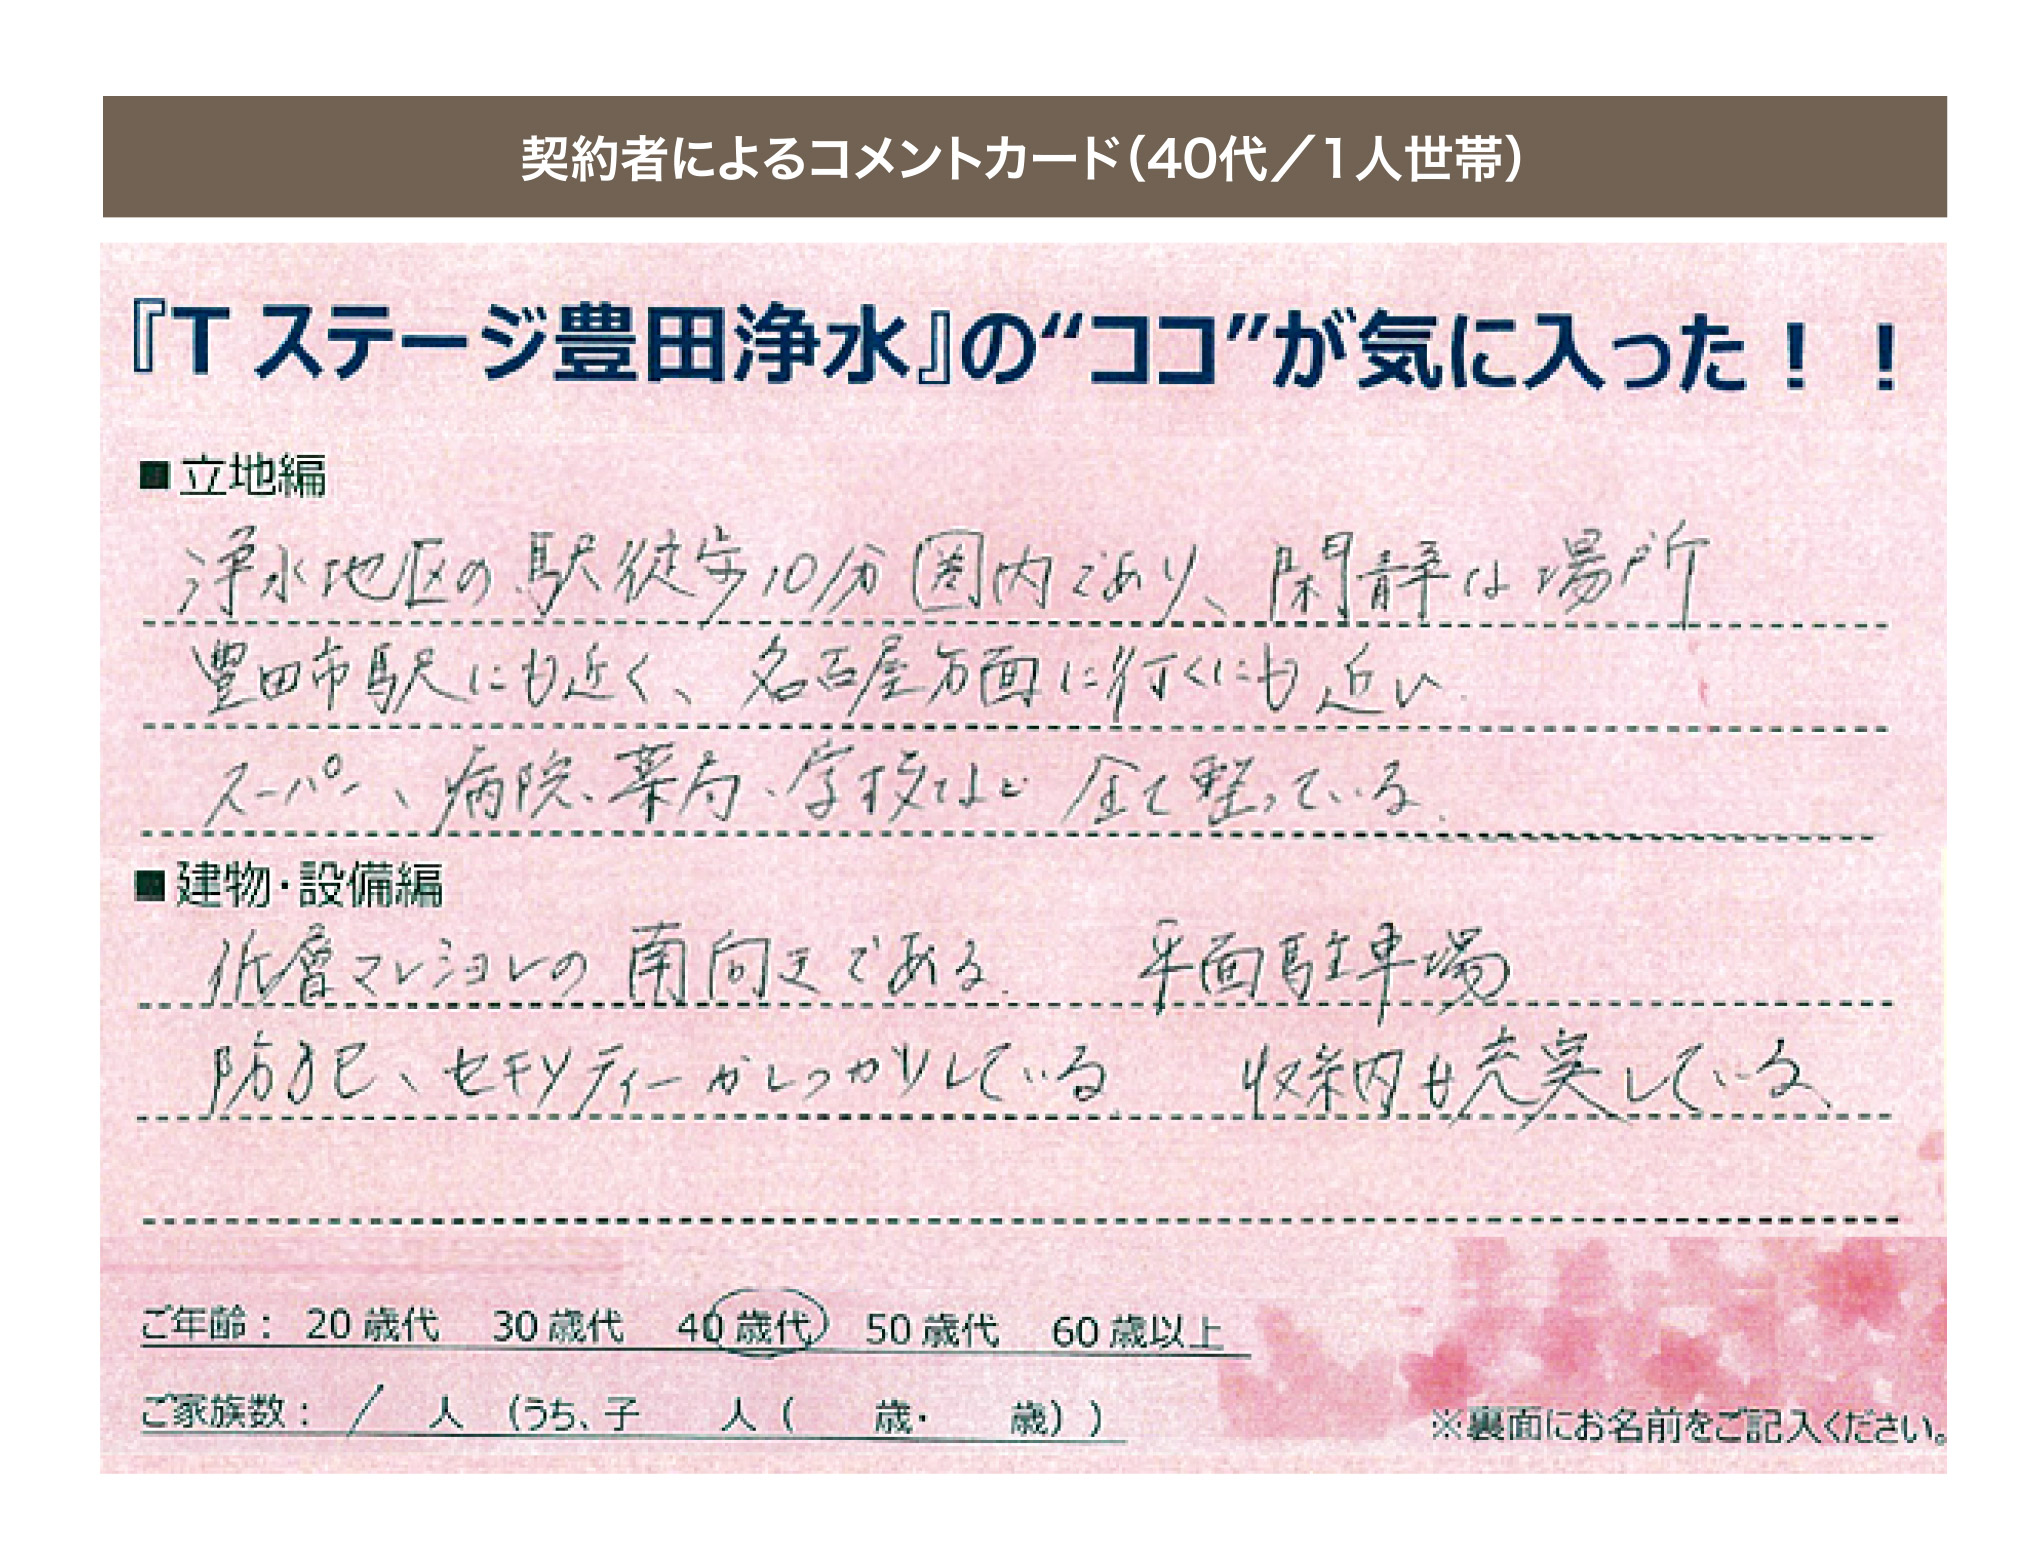 契約者によるコメントカード（40代／1人世帯）
『T ステージ豊田浄水』の“ココ”が気に入った！！
■立地編
浄水地区の駅徒歩10分圏内であり、閑静な場所
豊田市駅にも近く、名古屋方面に行くにも近い
スーパー、病院、薬局、学校など 全て整っている。
■建物・設備編
低層マンションの南向きである。 平面駐車場
防犯、セキリティーがしっかりしている。 収納も充実している。
ご年齢： 20歳代 30歳代 40歳代 50歳代 60歳以上
ご家族数： 1 人 （うち、子 人（ 歳・ 歳））
※裏面にお名前をご記入ください。